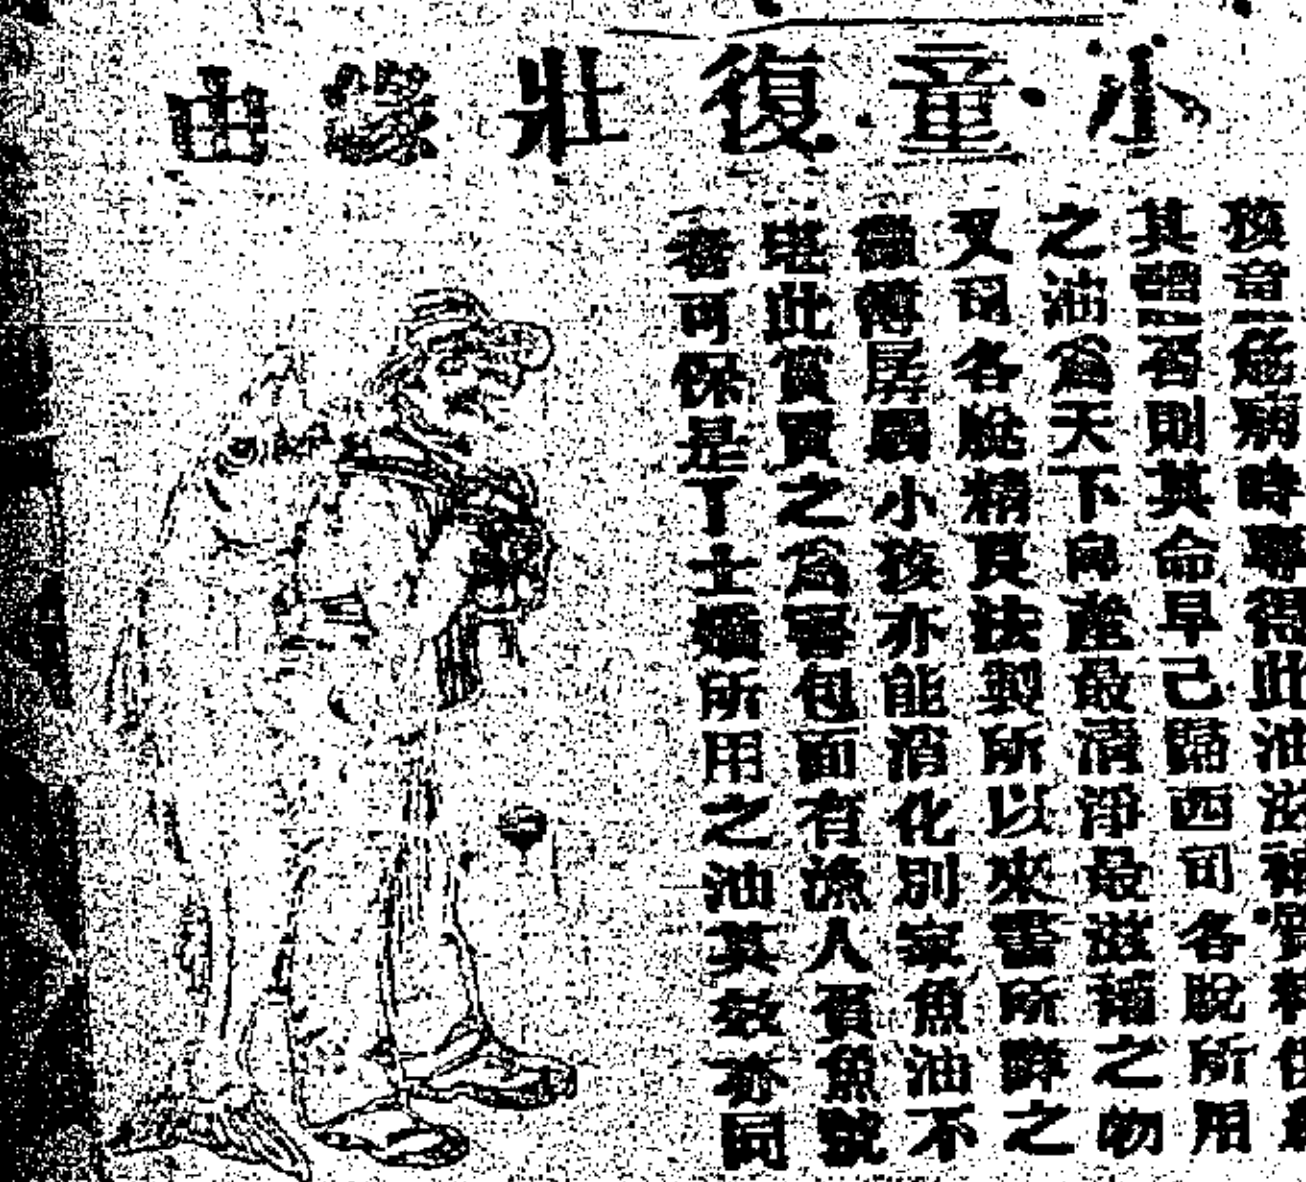 小童復壯緣由
孩一病時得此油滋補質料
其體否則其命早已歸西司各脫所用
之油為天下產最清淨最滋補之物
又司各脫精良法製所以來書所之
孱弱小孩亦能消化別家魚油不
此貨之為包面有漁人負魚號
者可保是丁士所用之油其效亦同